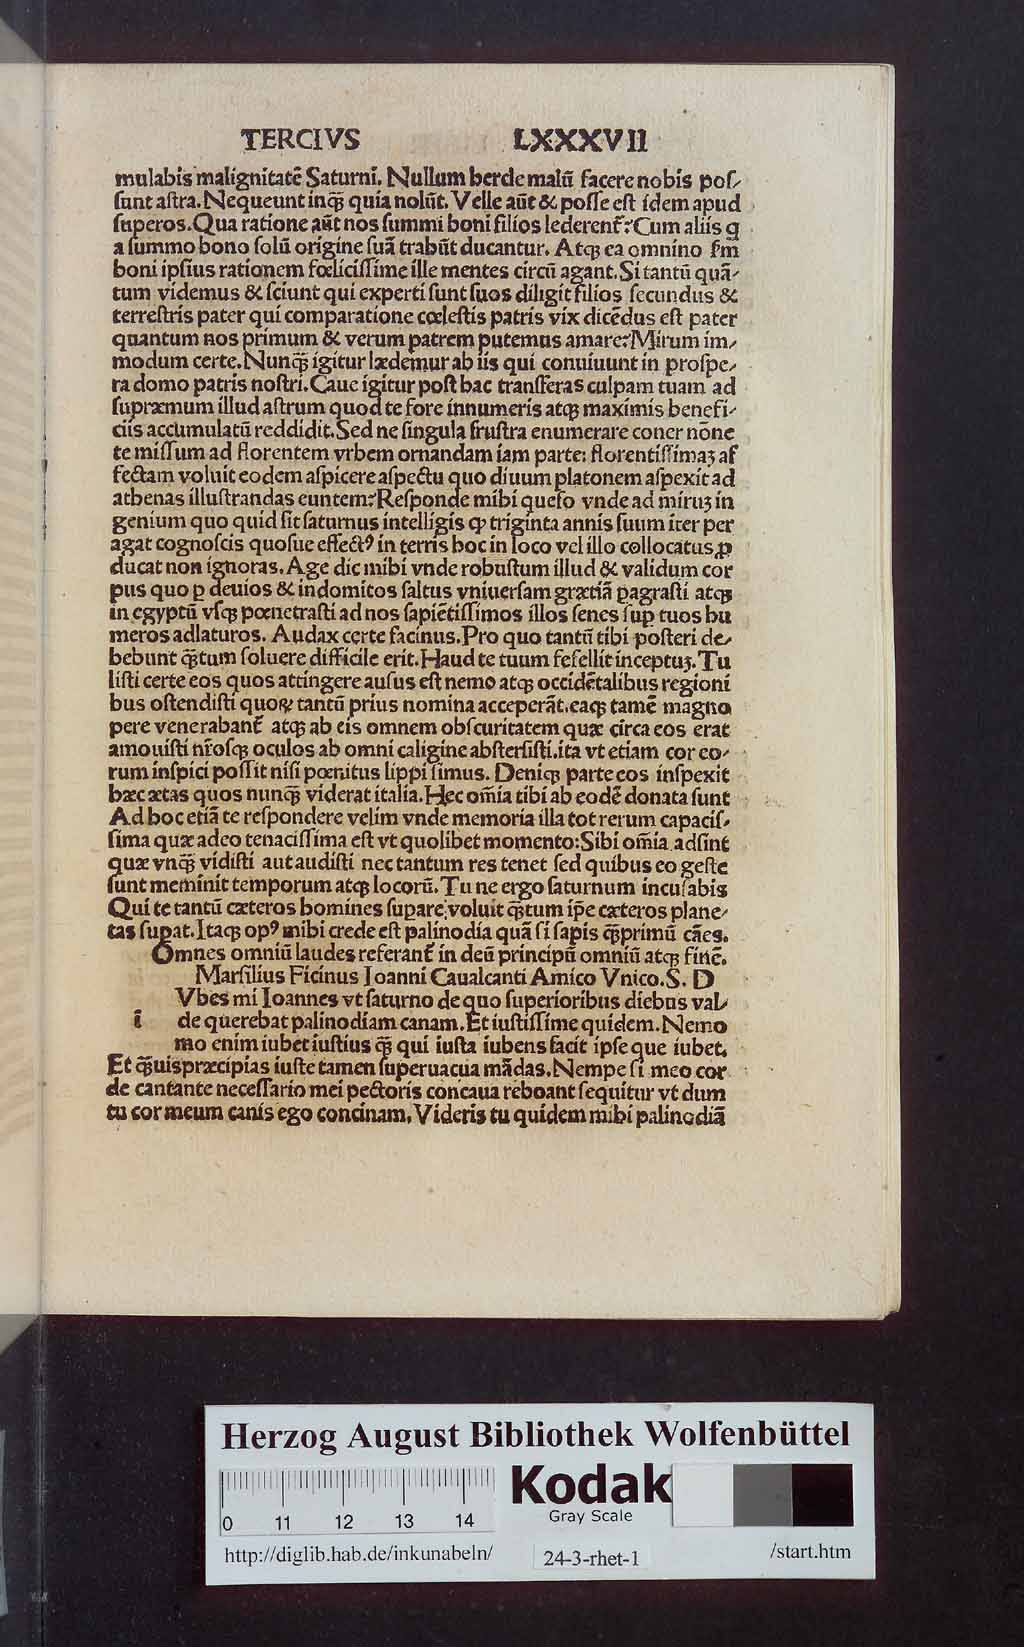 TERCIVS LXXXVII
mulabis malignitatē Saturni. Nullum herde malū facere nobis pos-
sunt astra. Nequeunt inqȝ quia nolūt. Velle aūt & posse est idem apud
superos. Qua ratione aūt nos summi boni filios lederent? Cum aliis q
a summo bono solū origine suā trabūt ducantur. Atqȝ ea omnino frm̄
boni ipsius rationem fœlicissime ille mentes circū agant. Si tantū quā-
tum videmus & sciunt qui experti sunt suos diligit filios secundus &
terrestris pater qui comparatione cœlestis patris vix dicēdus est pater
quantum nos primum & verum patrem putemus amare? Mirum im-
modum certe. Nunqȝ igitur lædemur ab iis qui conuiuunt in prospe-
ra domo patris nostri. Caue igitur post hac transferas culpam tuam ad
supræmum illud astrum quod te fore innumeris atqȝ maximis benefi-
ciis accumulatū reddidit. Sed ne singula frustra enumerare coner nōne
te missum ad florentem vrbem ornandam iam parte: florentissimaȝ af
fectam voluit eodem aspicere aspectu quo diuum platonem aspexit ad
athenas illustrandas euntem? Responde mihi queso vnde ad miruȝ in
genium quo quid sit saturnus intelligis qꝫ triginta annis suum iter per
agat cognoscis quosue effectꝰ in terris hoc in loco vel illo collocatus ꝓ
ducat non ignoras. Age dic mihi vnde robustum illud & validum cor
pus quo ꝑ deuios & indomitos saltus vniuersam grætiā ꝑagrasti atqȝ
in egyptū vsqȝ pœnetrasti ad nos sapiētissimos illos senes suꝑ tuos hu
meros adlaturos. Audax certe facinus. Pro quo tantū tibi posteri de-
bebunt qȝtum soluere difficile erit. Haud te tuum fefellit inceptuȝ. Tu
listi certe eos quos attingere ausus est nemo atqȝ occidētalibus regioni
bus ostendisti quoꝝ tantū prius nomina acceperāt. eaqȝ tamē magno
pere venerabant̄ atqȝ ab eis omnem obscuritatem quæ circa eos erat
amouisti nr̄osqȝ oculos ab omni caligine abstersisti. ita vt etiam cor eo-
rum inspici possit nisi pœnitus lippi simus. Deniqȝ parte eos inspexit
hæc ætas quos nunqȝ viderat italia. Hec om̄ia tibi ab eodē donata sunt
Ad hoc etiā te respondere velim vnde memoria illa tot rerum capacis-
sima quæ adeo tenacissima est vt quolibet momento: Sibi om̄ia adsint
quæ vnqȝ vidisti aut audisti nec tantum res tenet sed quibus eo geste
sunt meminit temporum atqȝ locorū. Tu ne ergo saturnum incusabis
Qui te tantū cæteros homines suꝑare voluit qȝtum ip̄e cæteros plane-
tas suꝑat. Itaqȝ opꝰ mihi crede est palinodia quā si sapis qȝprimū cāes.
Omnes omniū laudes referant̄ in deū principū omniū atqȝ finē.
Marsilius Ficinus Ioanni Caualcanti Amico Vnico. S. D
Vbes mi Ioannes vt saturno de quo superioribus diebus val-
i de querebat palinodiam canam. Et iustissime quidem. Nemo
mo enim iubet iustius qȝ qui iusta iubens facit ipse que iubet.
Et qȝuis præcipias iuste tamen superuacua mādas. Nempe si meo cor
de cantante necessario mei pectoris concaua reboant sequitur vt dum
tu cor meum canis ego concinam. Videris tu quidem mihi palinodiā
Herzog August Bibliothek Wolfenbüttel
0 11 12 13 14
Kodak
Gray Scale
http://diglib.hab.de/inkunabeln/ 24-3-rhet-1 /start.htm